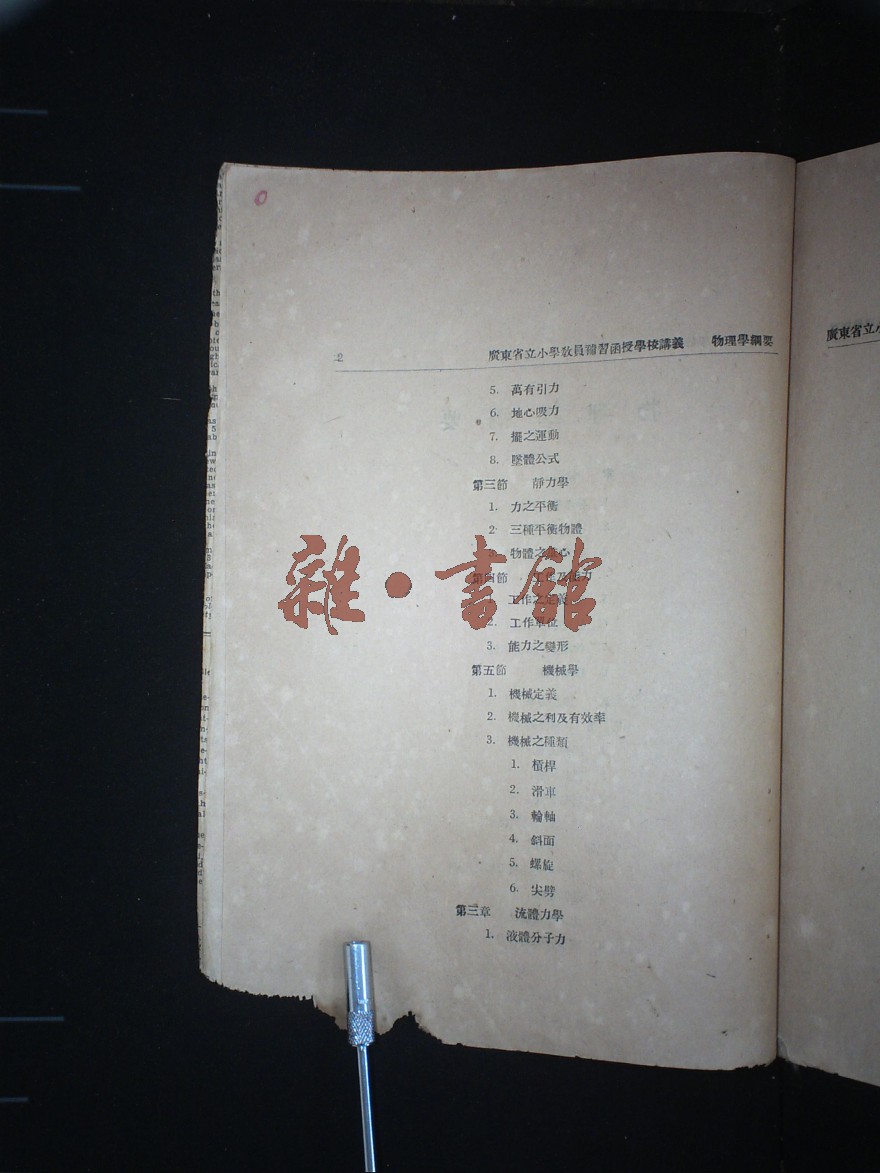 2 廣東省立小學敎員補習函授學校講義 物理學綱要
5. 萬有引力
6. 地心吸力
7. 擺之運動
8. 墜體公式
第三節 靜力學
1. 力之平衡
2. 三種平衡物體
3. 物體之重心
第四節 工作及能力
工作之定義
2. 工作單位
3. 能力之變形
第五節 機械學
1. 機械定義
2. 機械之利及有效率
3. 機械之種類
1. 槓桿
2. 滑車
3. 輪軸
4. 斜面
5. 螺旋
6. 尖劈
第三章 流體力學
1. 液體分子力
雜·書館
廣東省立